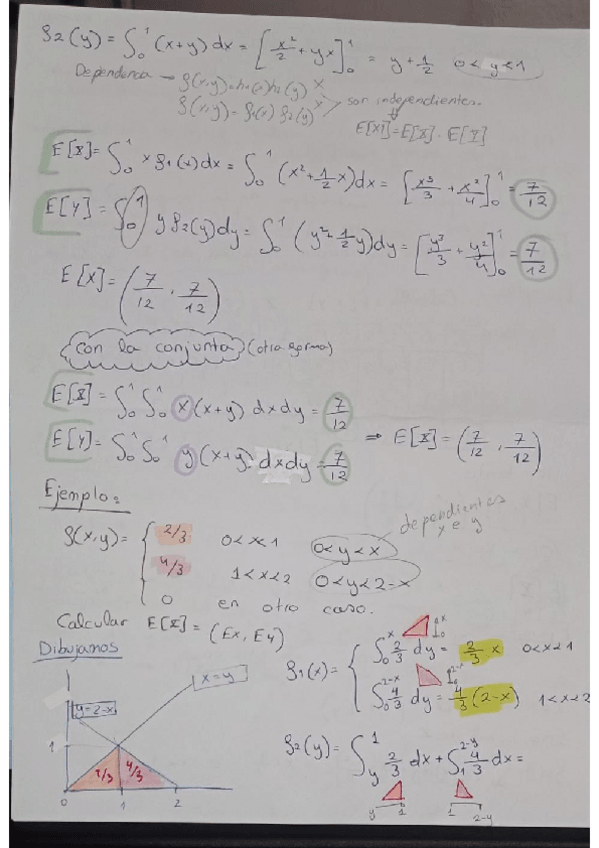 f2(y) = ∫₀¹ (x+y) dx = [x²/2 + yx]₀¹ = y + 1/2   0<y<1
Dependencia → f(x,y) = h1(x)h2(y) X
f(x,y) = f1(x) f2(y) X > son independientes.
E[XY] = E[X] · E[Y]
E[X] = ∫₀¹ x f1(x) dx = ∫₀¹ (x² + 1/2 x) dx = [x³/3 + x²/4]₀¹ = 7/12
E[Y] = ∫₀¹ y f2(y) dy = ∫₀¹ (y² + 1/2 y) dy = [y³/3 + y²/4]₀¹ = 7/12
E[X] = (7/12, 7/12)
con la conjunta (otra forma)
E[X] = ∫₀¹ ∫₀¹ x (x+y) dx dy = 7/12
E[Y] = ∫₀¹ ∫₀¹ y (x+y) dxdy = 7/12   ⇒ E[X] = (7/12, 7/12)
Ejemplo:
dependientes
x e y
f(x,y) = { 2/3   0<x<1   0<y<x
4/3   1<x<2   0<y<2-x
0   en otro caso.
Calcular E[X] = (Ex, Ey)
Dibujamos
x=y
y=2-x
1
2/3 4/3
0 1 2
f1(x) = { ∫₀ˣ 2/3 dy = 2/3 x   0<x<1
∫₀²⁻ˣ 4/3 dy = 4/3 (2-x)   1<x<2
f2(y) = ∫_y¹ 2/3 dx + ∫₁²⁻ʸ 4/3 dx =
y 1   1 2-y